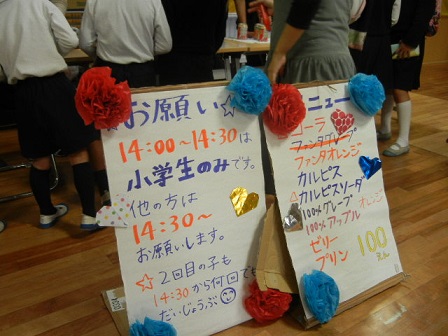 お願い☆
14:00~14:30は
小学生のみです。
他の方は
14:30~
お願いします。
☆2回目の子も
14:30から何回でも
だいじょうぶ
ニュー
コーラ
ファンタグレープ
ファンタオレンジ
カルピス
カルピスソーダ
100%グレープ
オレンジ
100%アップル
ゼリー
プリン
100